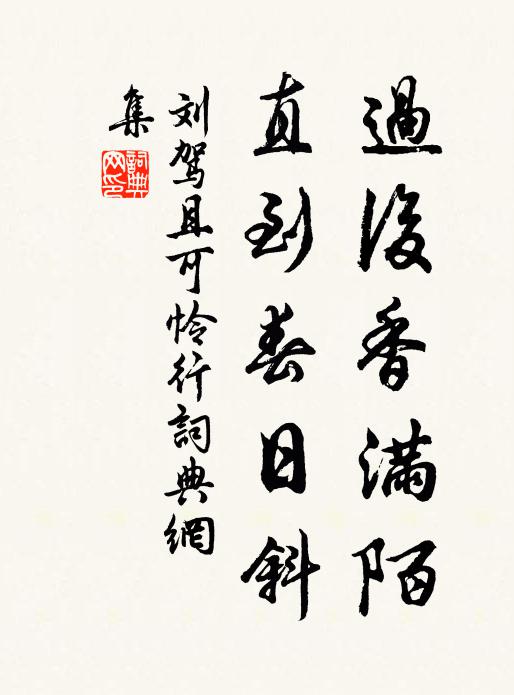 過後香滿陌
直到春日斜
刘驾且可怜行詞典網
集
詞典
网印